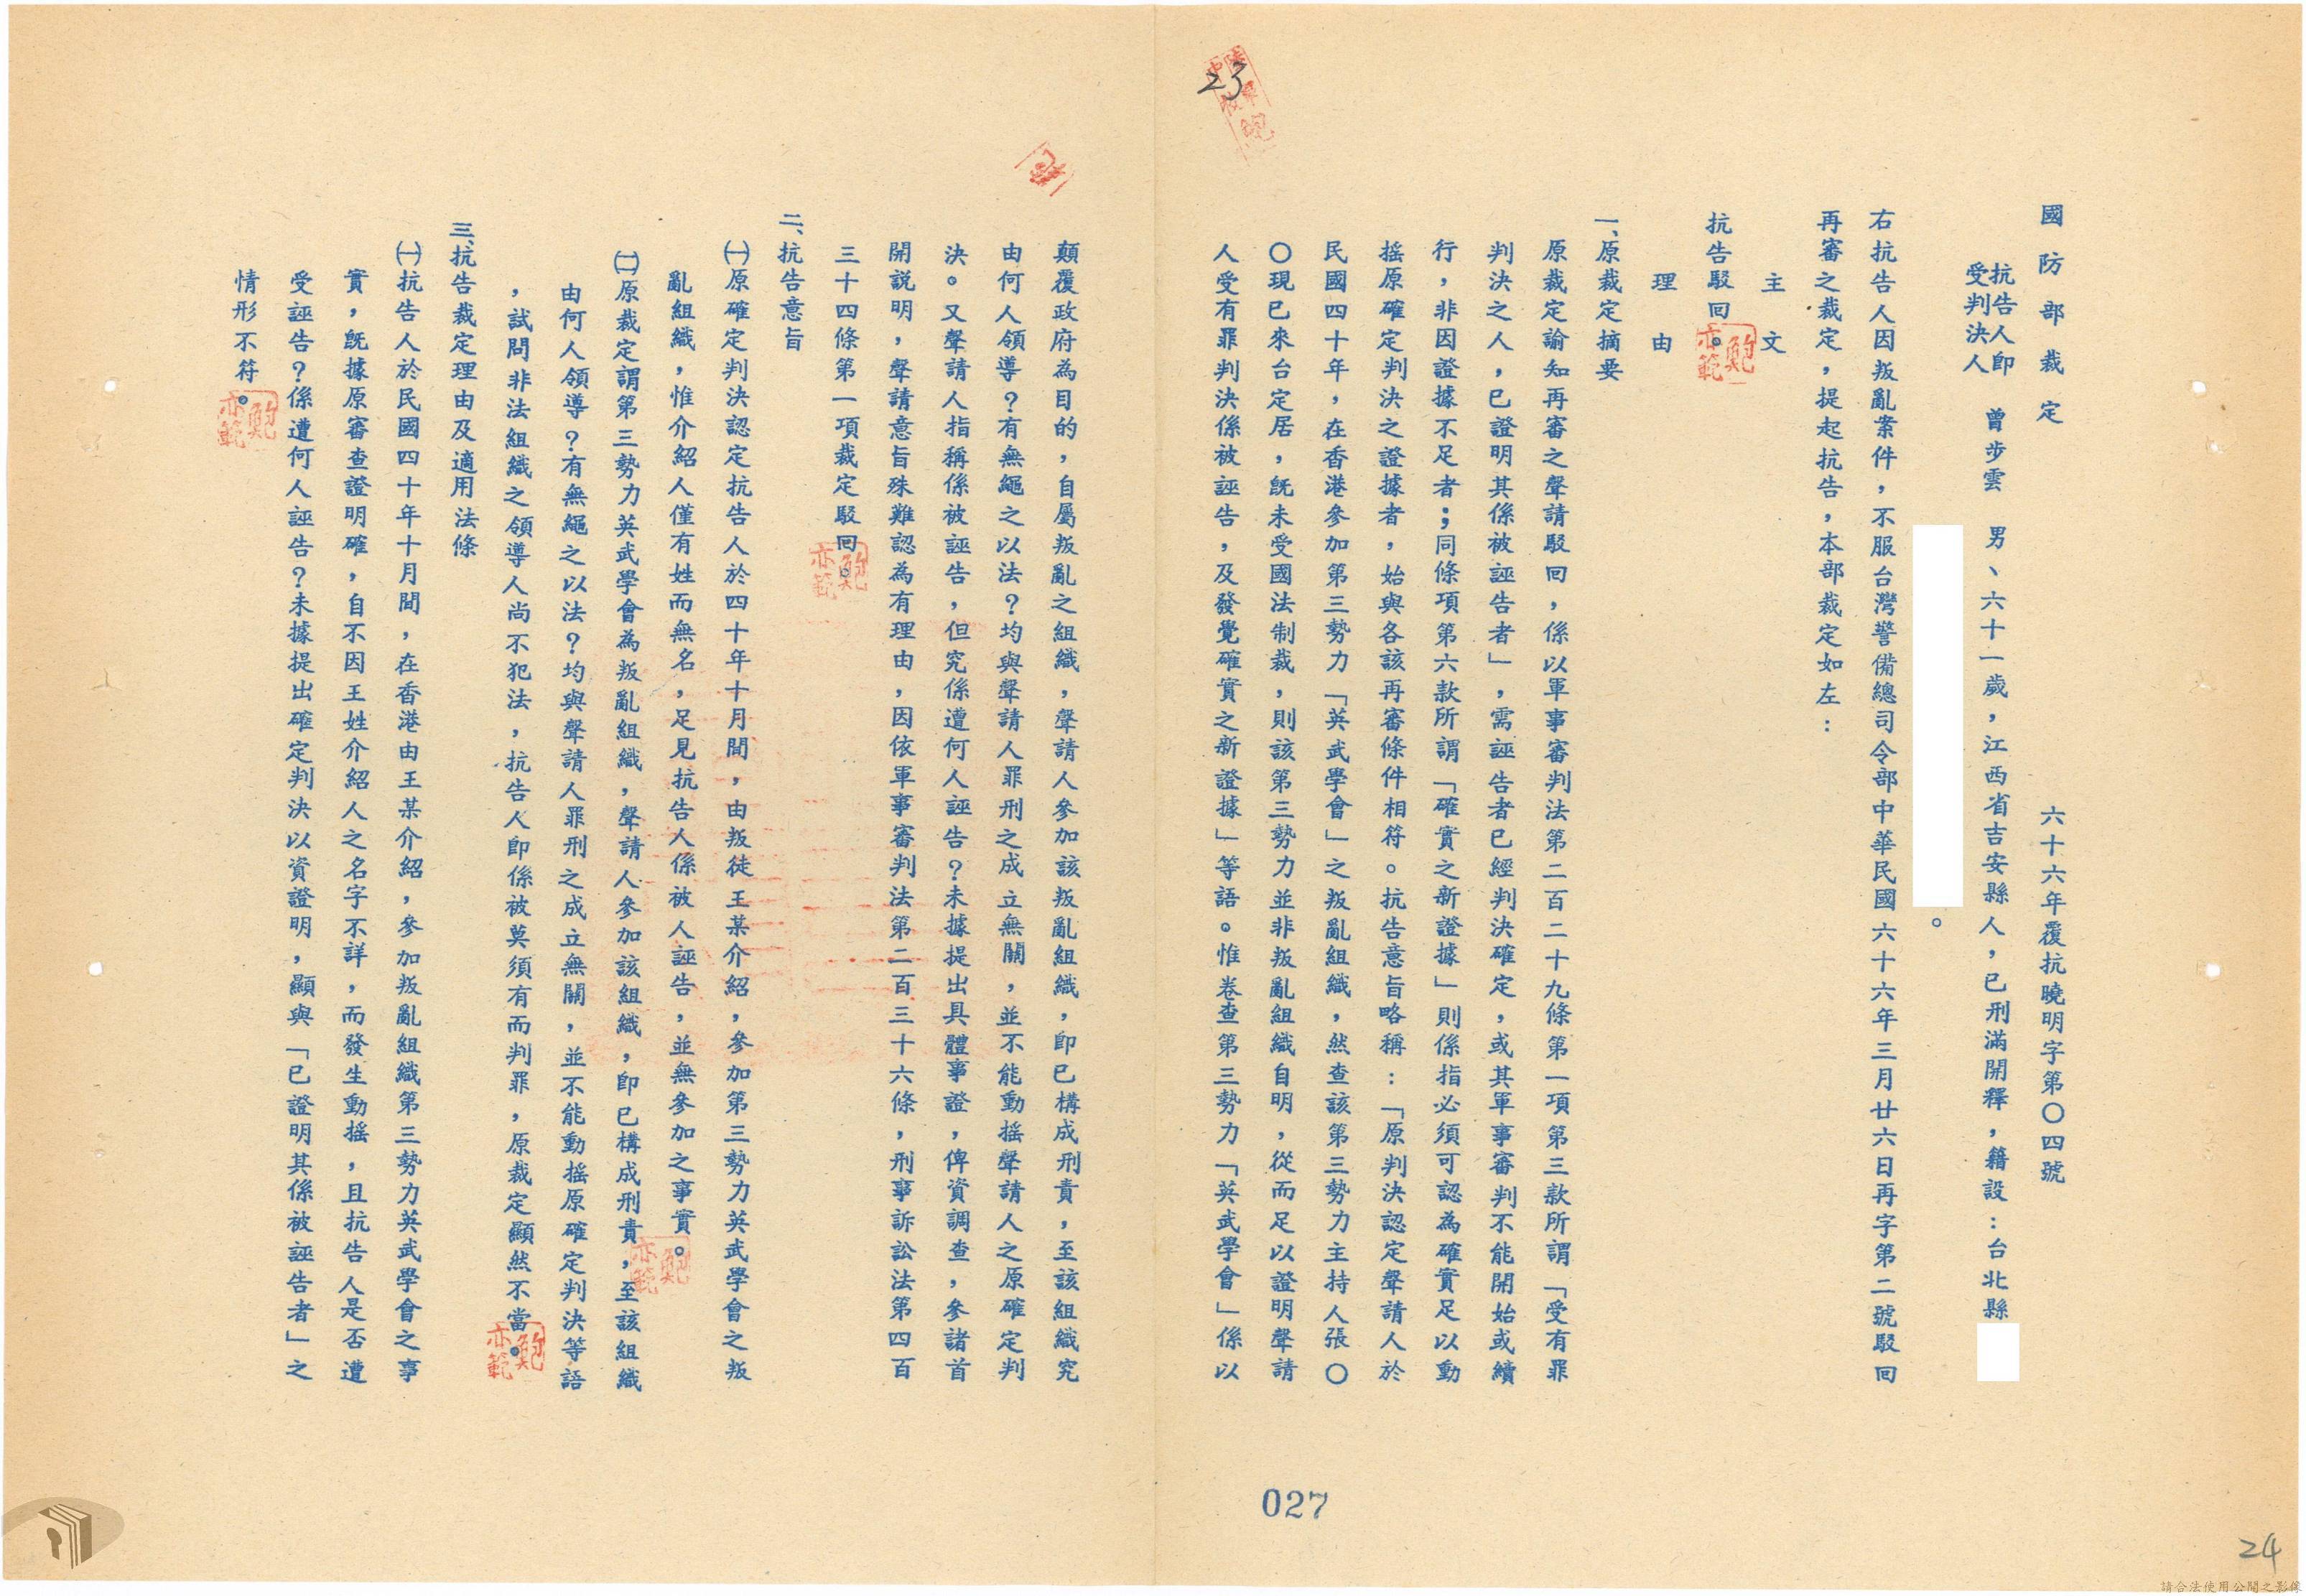 國防部裁定
六十六年覆抗曉明字第〇四號
抗告人即
受判決人
曾步雲　男、六十一歲，江西省吉安縣人，已刑滿開釋，籍設：台北縣
。
右抗告人因叛亂案件，不服台灣警備總司令部中華民國六十六年三月廿六日再字第二號駁回
再審之裁定，提起抗告，本部裁定如左：
主文
抗告駁回。
理由
一、原裁定摘要
原裁定諭知再審之聲請駁回，係以軍事審判法第二百二十九條第一項第三款所謂「受有罪
判決之人，已證明其係被誣告者」，需誣告者已經判決確定，或其軍事審判不能開始或續
行，非因證據不足者；同條項第六款所謂「確實之新證據」則係指必須可認為確實足以動
搖原確定判決之證據者，始與各該再審條件相符。抗告意旨略稱：「原判決認定聲請人於
民國四十年，在香港參加第三勢力「英武學會」之叛亂組織，然查該第三勢力主持人張〇
〇現已來台定居，旣未受國法制裁，則該第三勢力並非叛亂組織自明，從而足以證明聲請
人受有罪判決係被誣告，及發覺確實之新證據」等語。惟卷查第三勢力「英武學會」係以
顛覆政府為目的，自屬叛亂之組織，聲請人參加該叛亂組織，即已構成刑責，至該組織究
由何人領導？有無繩之以法？均與聲請人罪刑之成立無關，並不能動搖聲請人之原確定判
決。又聲請人指稱係被誣告，但究係遭何人誣告？未據提出具體事證，俾資調查，參諸首
開說明，聲請意旨殊難認為有理由，因依軍事審判法第二百三十六條，刑事訴訟法第四百
三十四條第一項裁定駁回。
二、抗告意旨
㈠原確定判決認定抗告人於四十年十月間，由叛徒王某介紹，參加第三勢力英武學會之叛
亂組織，惟介紹人僅有姓而無名，足見抗告人係被人誣告，並無參加之事實。
㈡原裁定謂第三勢力英武學會為叛亂組織，聲請人參加該組織，即已構成刑責，至該組織
由何人領導？有無繩之以法？均與聲請人罪刑之成立無關，並不能動搖原確定判決等語
，試問非法組織之領導人尚不犯法，抗告人即係被莫須有而判罪，原裁定顯然不當。
三、抗告裁定理由及適用法條
㈠抗告人於民國四十年十月間，在香港由王某介紹，參加叛亂組織第三勢力英武學會之事
實，旣據原審查證明確，自不因王姓介紹人之名字不詳，而發生動搖，且抗告人是否遭
受誣告？係遭何人誣告？未據提出確定判決以資證明，顯與「已證明其係被誣告者」之
情形不符。
鮑亦範
鮑亦範
鮑亦範
鮑亦範
鮑亦範
23
027
24
請合法使用公開之影像